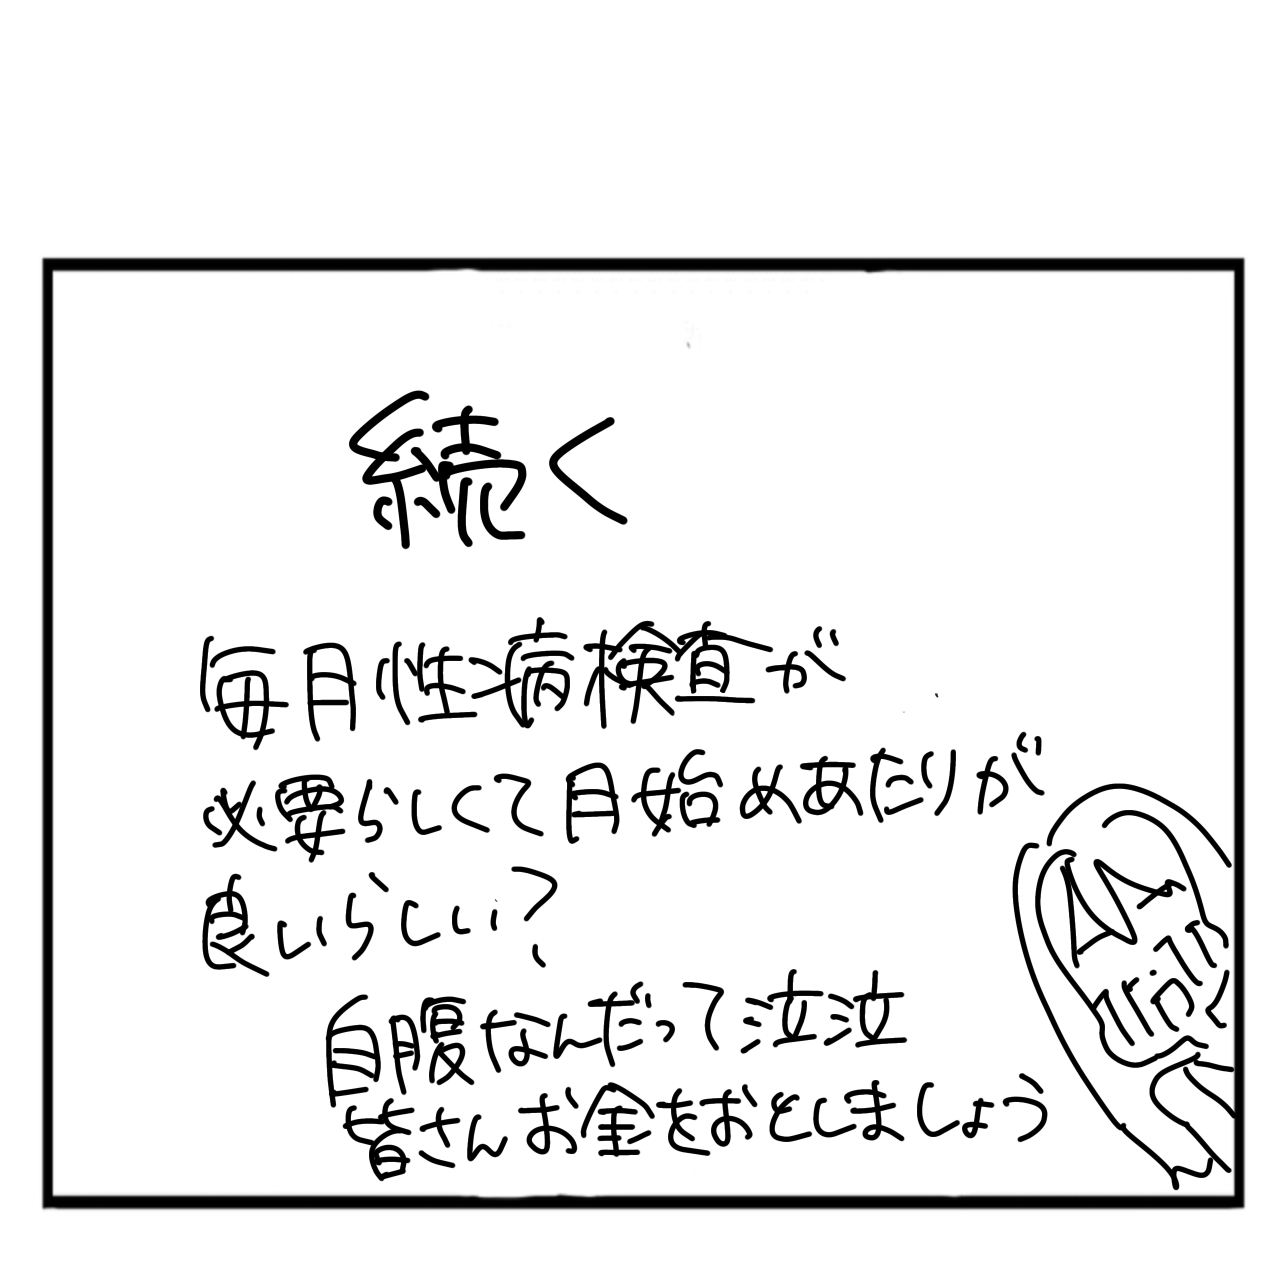 続く
毎月性病検査が
必要らしくて月始めあたりが
良いらしい?
自腹なんだって泣泣
皆さんお金をおとしましょう